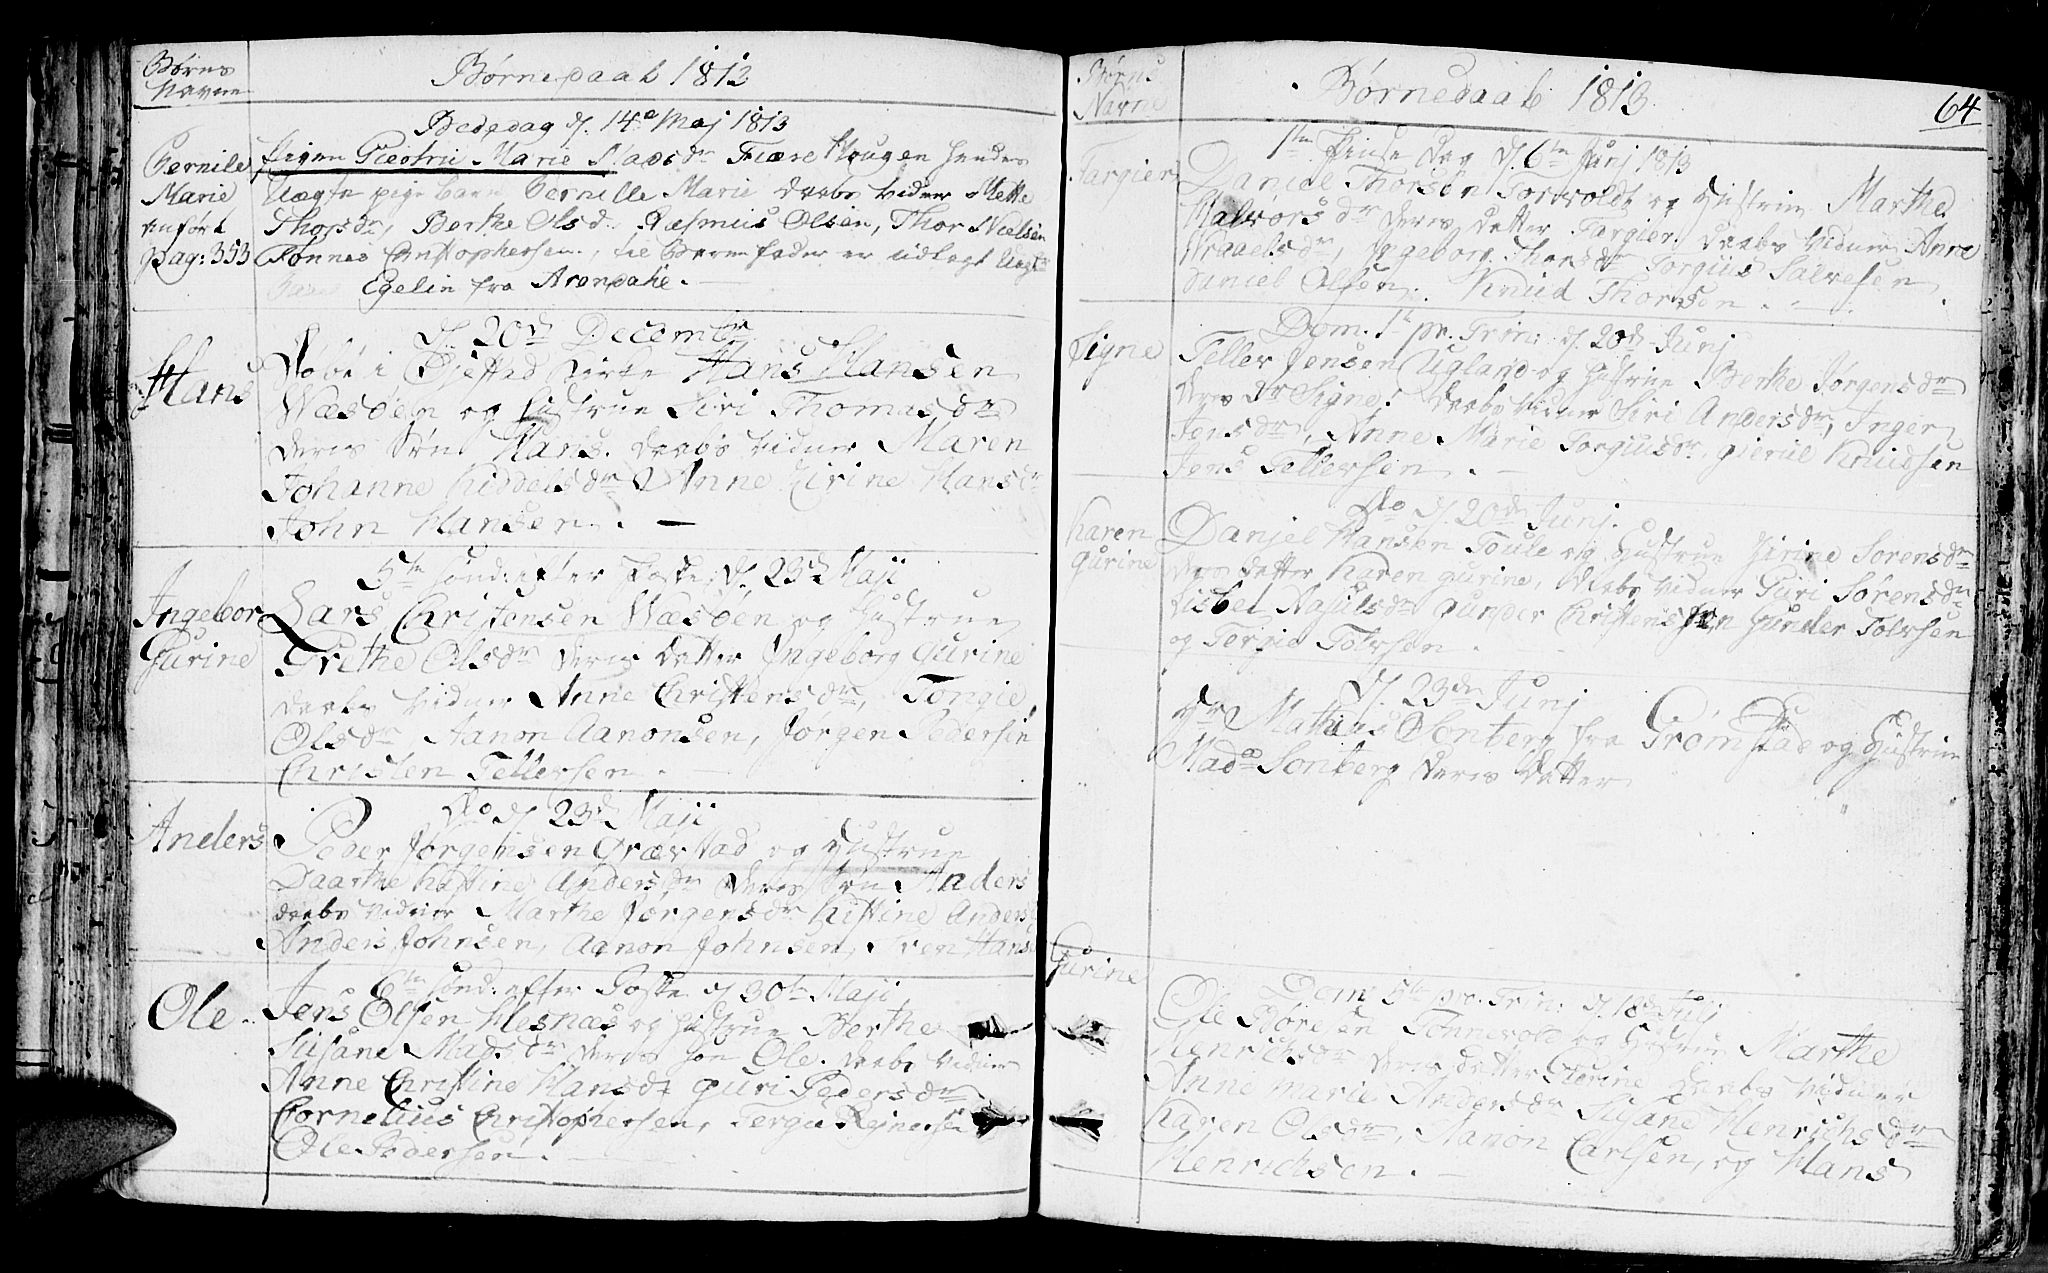 Børnes
Navne
Børnedaab 1813
Bededag d. 14de Maj 1813
Pernile
Marie
anført
Pag: 353
Pigen Marie Fiære Hougen hendes
Uægte pige barn Pernille Marie Daabs Vidner Mette
Thorsdr, Berthe Olsd. Rasmus Olsen, Thor Nielsen
Tønnes Christophersen, til Barnefader er udlagt
Egelie fra Arendahl.
d. 20de Decembr
Hans
Døbt i Øjestad Kirke Hans Hansen
Wæsøen og Hustrue Siri Thomasdr
deres Søn Hans. Daabs Vidner Maren
Johanne Kiddelsdr Anne Zirine Hansdr
John Hansen.
5te Sønd: efter Paaske d. 23d Maji
Ingebor
Gurine
Lars Christensen Wæsøen og Hustrue
Grethe Olsdr deres Datter Ingeborg Gurine
daabs Vidner Anne Christensdr, Torgie
Olsdr Aanon Aanonsen, Jørgen Pedersen
Christen Tellefsen.
do d. 23d Maji
Anders
Peder Jørgensen Græfstad og Hustrue
Daarthe Kistine Andersdr deres Søn Anders
daabs Vidner Marthe Jørgensdr Kistine Anders
Anders Johnsen, Aanon Johnsen, Sven Hans
6te Sønd: efter Paske d 30te Maji
Ole
Jens Elsen Hesnæs og Hustrue Berthe
Susane Madsdr deres Søn Ole. daabs Vidner
Anne Christine Hansdr guri Pedersdr
Cornelius Christophersen, Terge Rejnersen
Ole Pedersen.
Børns
Navne
Børnedaab 1813.
64
1te Pintse Dag d. 6te Junj 1813
Targier
Daniel Thorsen Torvolds og Hustrue Marthe
Halvorsdr deres datter Targier. daabs Vidner Anne
Wraaelsdr, Ingeborg Thorsdr Torgius Salvesen
Daniel Olsen. Knud Thorsen.
Dom. 1te pr. Trin: d. 20de Junj
Signe
Tellef Jensen Ugland og Hustrue Berthe Jørgensdr
deres Dr Signe. daabs Vidner Siri Andersdr, Inger
Jensdr, Anne Marie Torgiusdr, gierul Knudsen
Jens Tellefsen.
do d. 20de Junj.
Karen
gurine
Danjel Hansen Toule og Hustrue Sirine Sørensdr
deres datter Karen gurine, daabs Vidner Guri Sørensdr
Lisbet Axsulsdr Gunder Christensen Gunder Tolvsen
og Tergie Tolvsen.
d. 23de Junj
Hr Mathias fra Grømstad og Hustrue
Mada Sonberg deres datter
Dom 5te pr. Trin: d. 18de Julj
Gurine
Ole Børesen Tønnevold og Hustrue Marthe
Henrichsdr deres datter Gurine daabs Vidner
Anne marie Andersdr Susane Henrichsdr
Karen Olsdr, Aanon Carlsen, og Hans
Henrichsen.